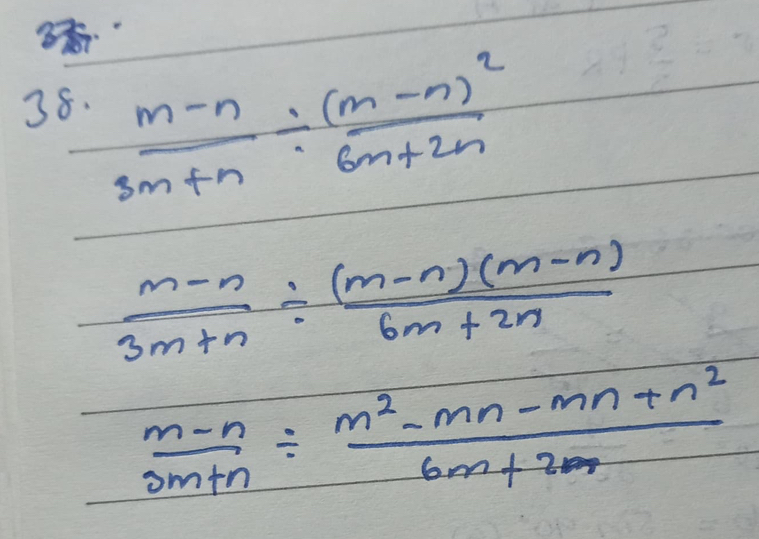 38. (m - n)/(3m + n) ÷ (m - n)²/(6m + 2n)
(m - n)/(3m + n) ÷ (m - n)(m - n)/(6m + 2n)
(m - n)/(3m + n) ÷ (m² - mn - mn + n²)/(6m + 2n)